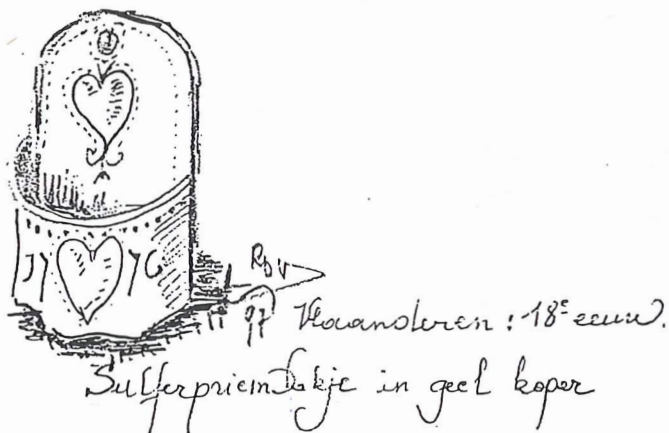 17 76
RDV
97
Vlaanderen : 18e eeuw.
Sulferpriembakje in geel koper